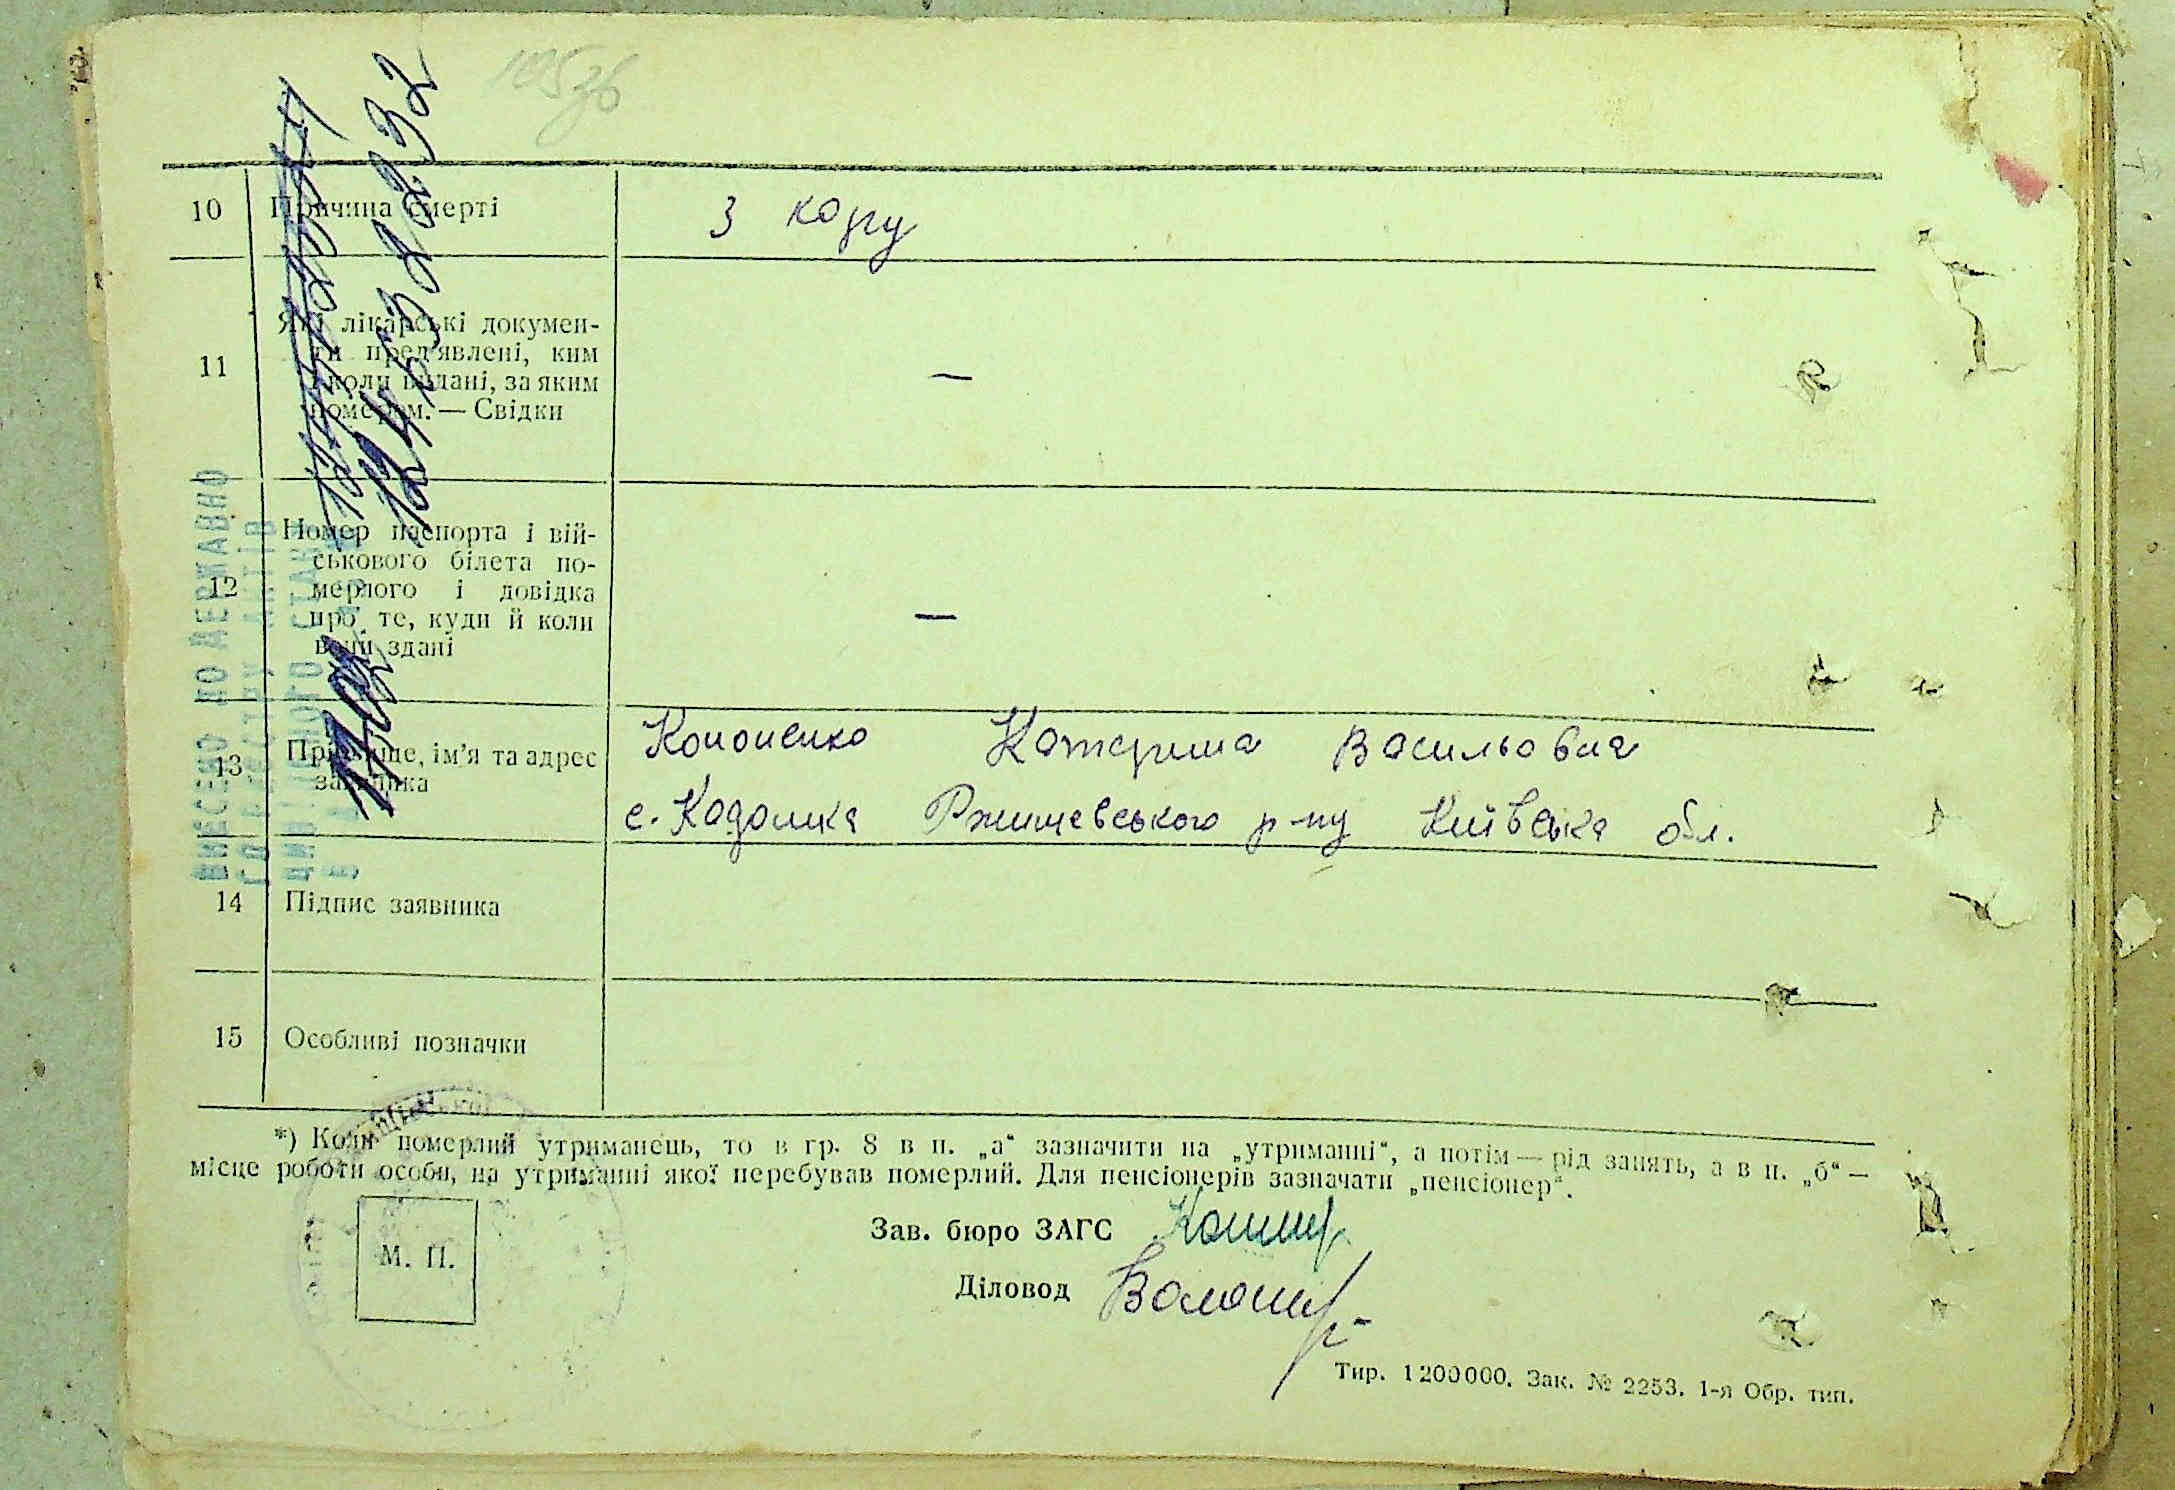 105зв
10 Причина смерті з кору
11 Які лікарські докумен-
ти пред'явлені, ким
і коли видані, за яким
номером. — Свідки —
12 Номер паспорта і вій-
ськового білета по-
мерлого і довідка
про те, куди й коли
вони здані —
13 Прізвище, ім'я та адрес
заявника
Кононенко Катерина Васильовна
с. Кадомка Ржищевського р-ну Київська обл.
14 Підпис заявника
15 Особливі позначки
*) Коли померлий утриманець, то в гр. 8 в п. „а“ зазначити на „утриманні“, а потім — рід занять, а в п. „б“ —
місце роботи особи, на утриманні якої перебував померлий. Для пенсіонерів зазначати „пенсіонер“.
М. П.
Зав. бюро ЗАГС
Діловод
Тир. 1200000. Зак. № 2253. 1-я Обр. тип.
ВНЕСЕНО ДО ДЕРЖАВНО
ГО РЕЄСТРУ АКТІВ
ЦИВІЛЬНОГО СТАНУ